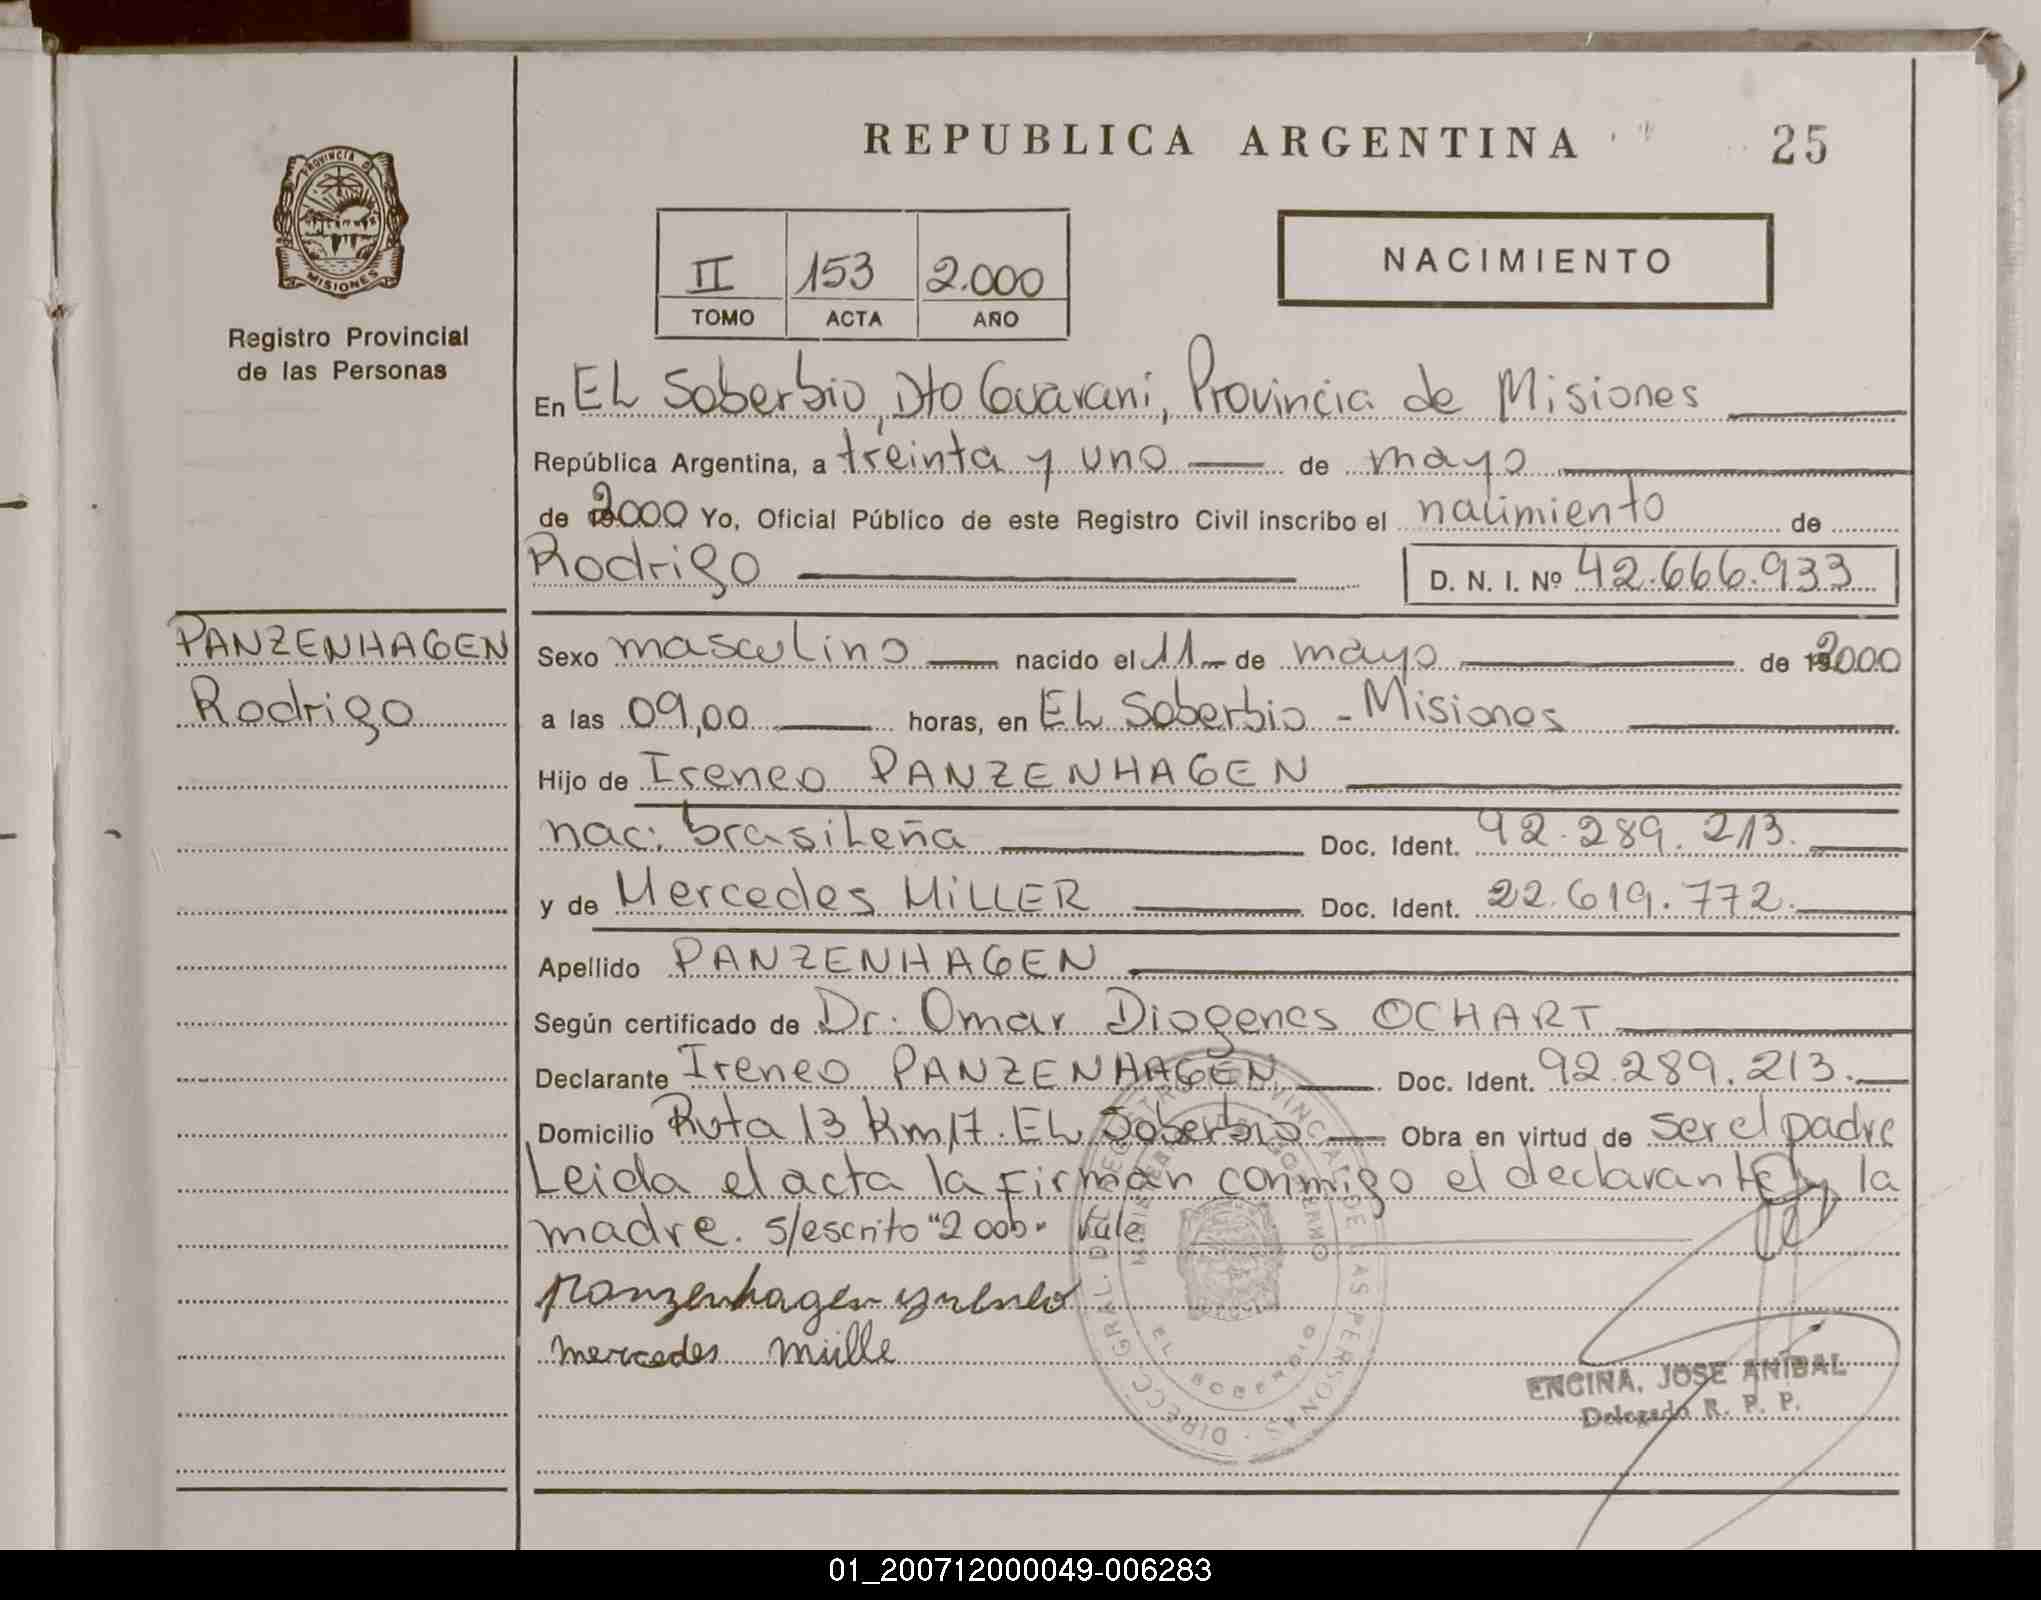 REPUBLICA ARGENTINA
25
PROVINCIA DE
MISIONES
Registro Provincial
de las Personas
II 153 2.000
TOMO ACTA AÑO
NACIMIENTO
En EL Soberbio, Dto Guarani, Provincia de Misiones
República Argentina, a treinta y uno de mayo
de 2000 Yo, Oficial Público de este Registro Civil inscribo el nacimiento de
Rodrigo D. N. I. Nº 42.666.933
PANZENHAGEN
Rodrigo
Sexo masculino nacido el 11 de mayo de 2000
a las 09,00 horas, en EL Soberbio - Misiones
Hijo de Ireneo PANZENHAGEN
nac: brasileña Doc. Ident. 92.289.213.
y de Mercedes MiLLER Doc. Ident. 22.619.772.
Apellido PANZENHAGEN
Según certificado de Dr. Omar Diogenes OCHART
Declarante Ireneo PANZENHAGEN Doc. Ident. 92.289.213.
Domicilio Ruta 13 Km 17. EL Soberbio Obra en virtud de ser el padre
Leida el acta la firman conmigo el declarante y la
madre. s/escrito "2000" Vale
Panzenhagen yreneo
mercedes mülle
DIRECC. GRAL. DEL REGISTRO PROVINCIAL DE LAS PERSONAS
MINISTERIO DE GOBIERNO
EL SOBERBIO
ENCINA, JOSE ANIBAL
Delegado R. P. P.
01_200712000049-006283